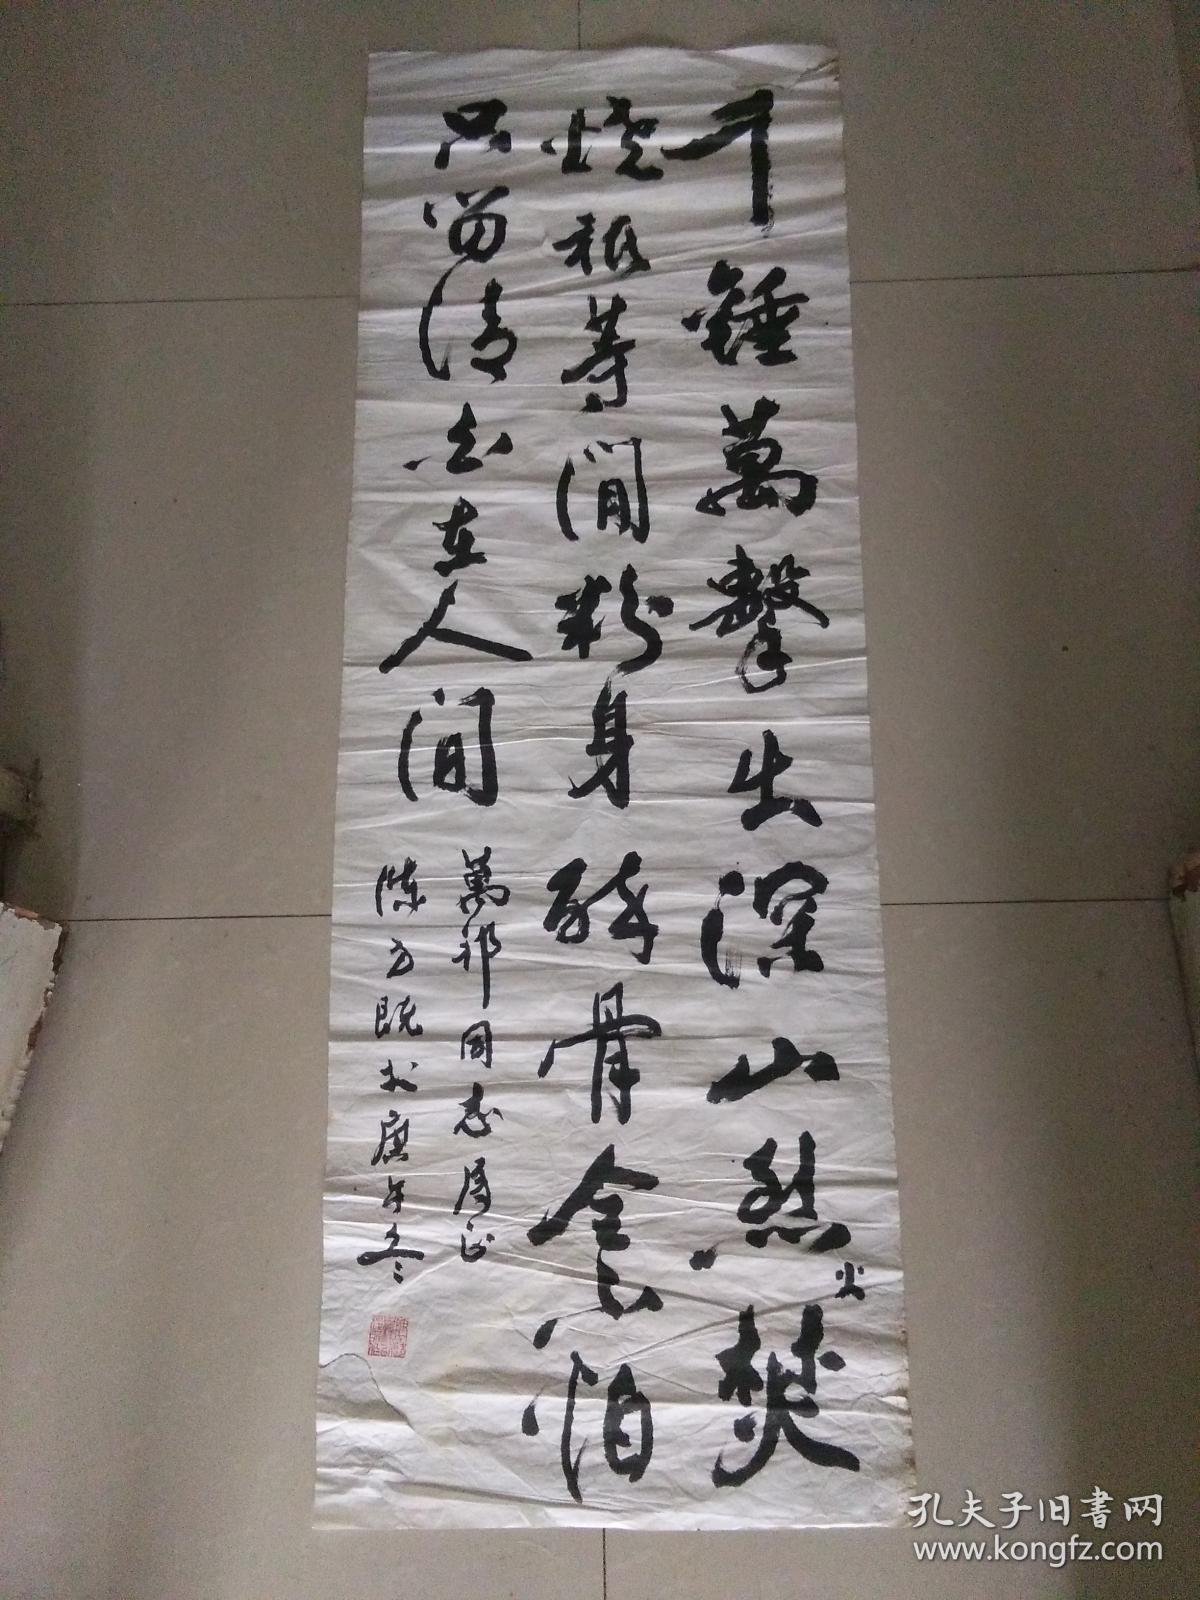 千錘萬擊出深山烈火焚
烧祇等閒粉身碎骨全不怕
只留清白在人间
萬祁同志属正
陳方既书庚午冬
孔夫子旧書网
www.kongfz.com